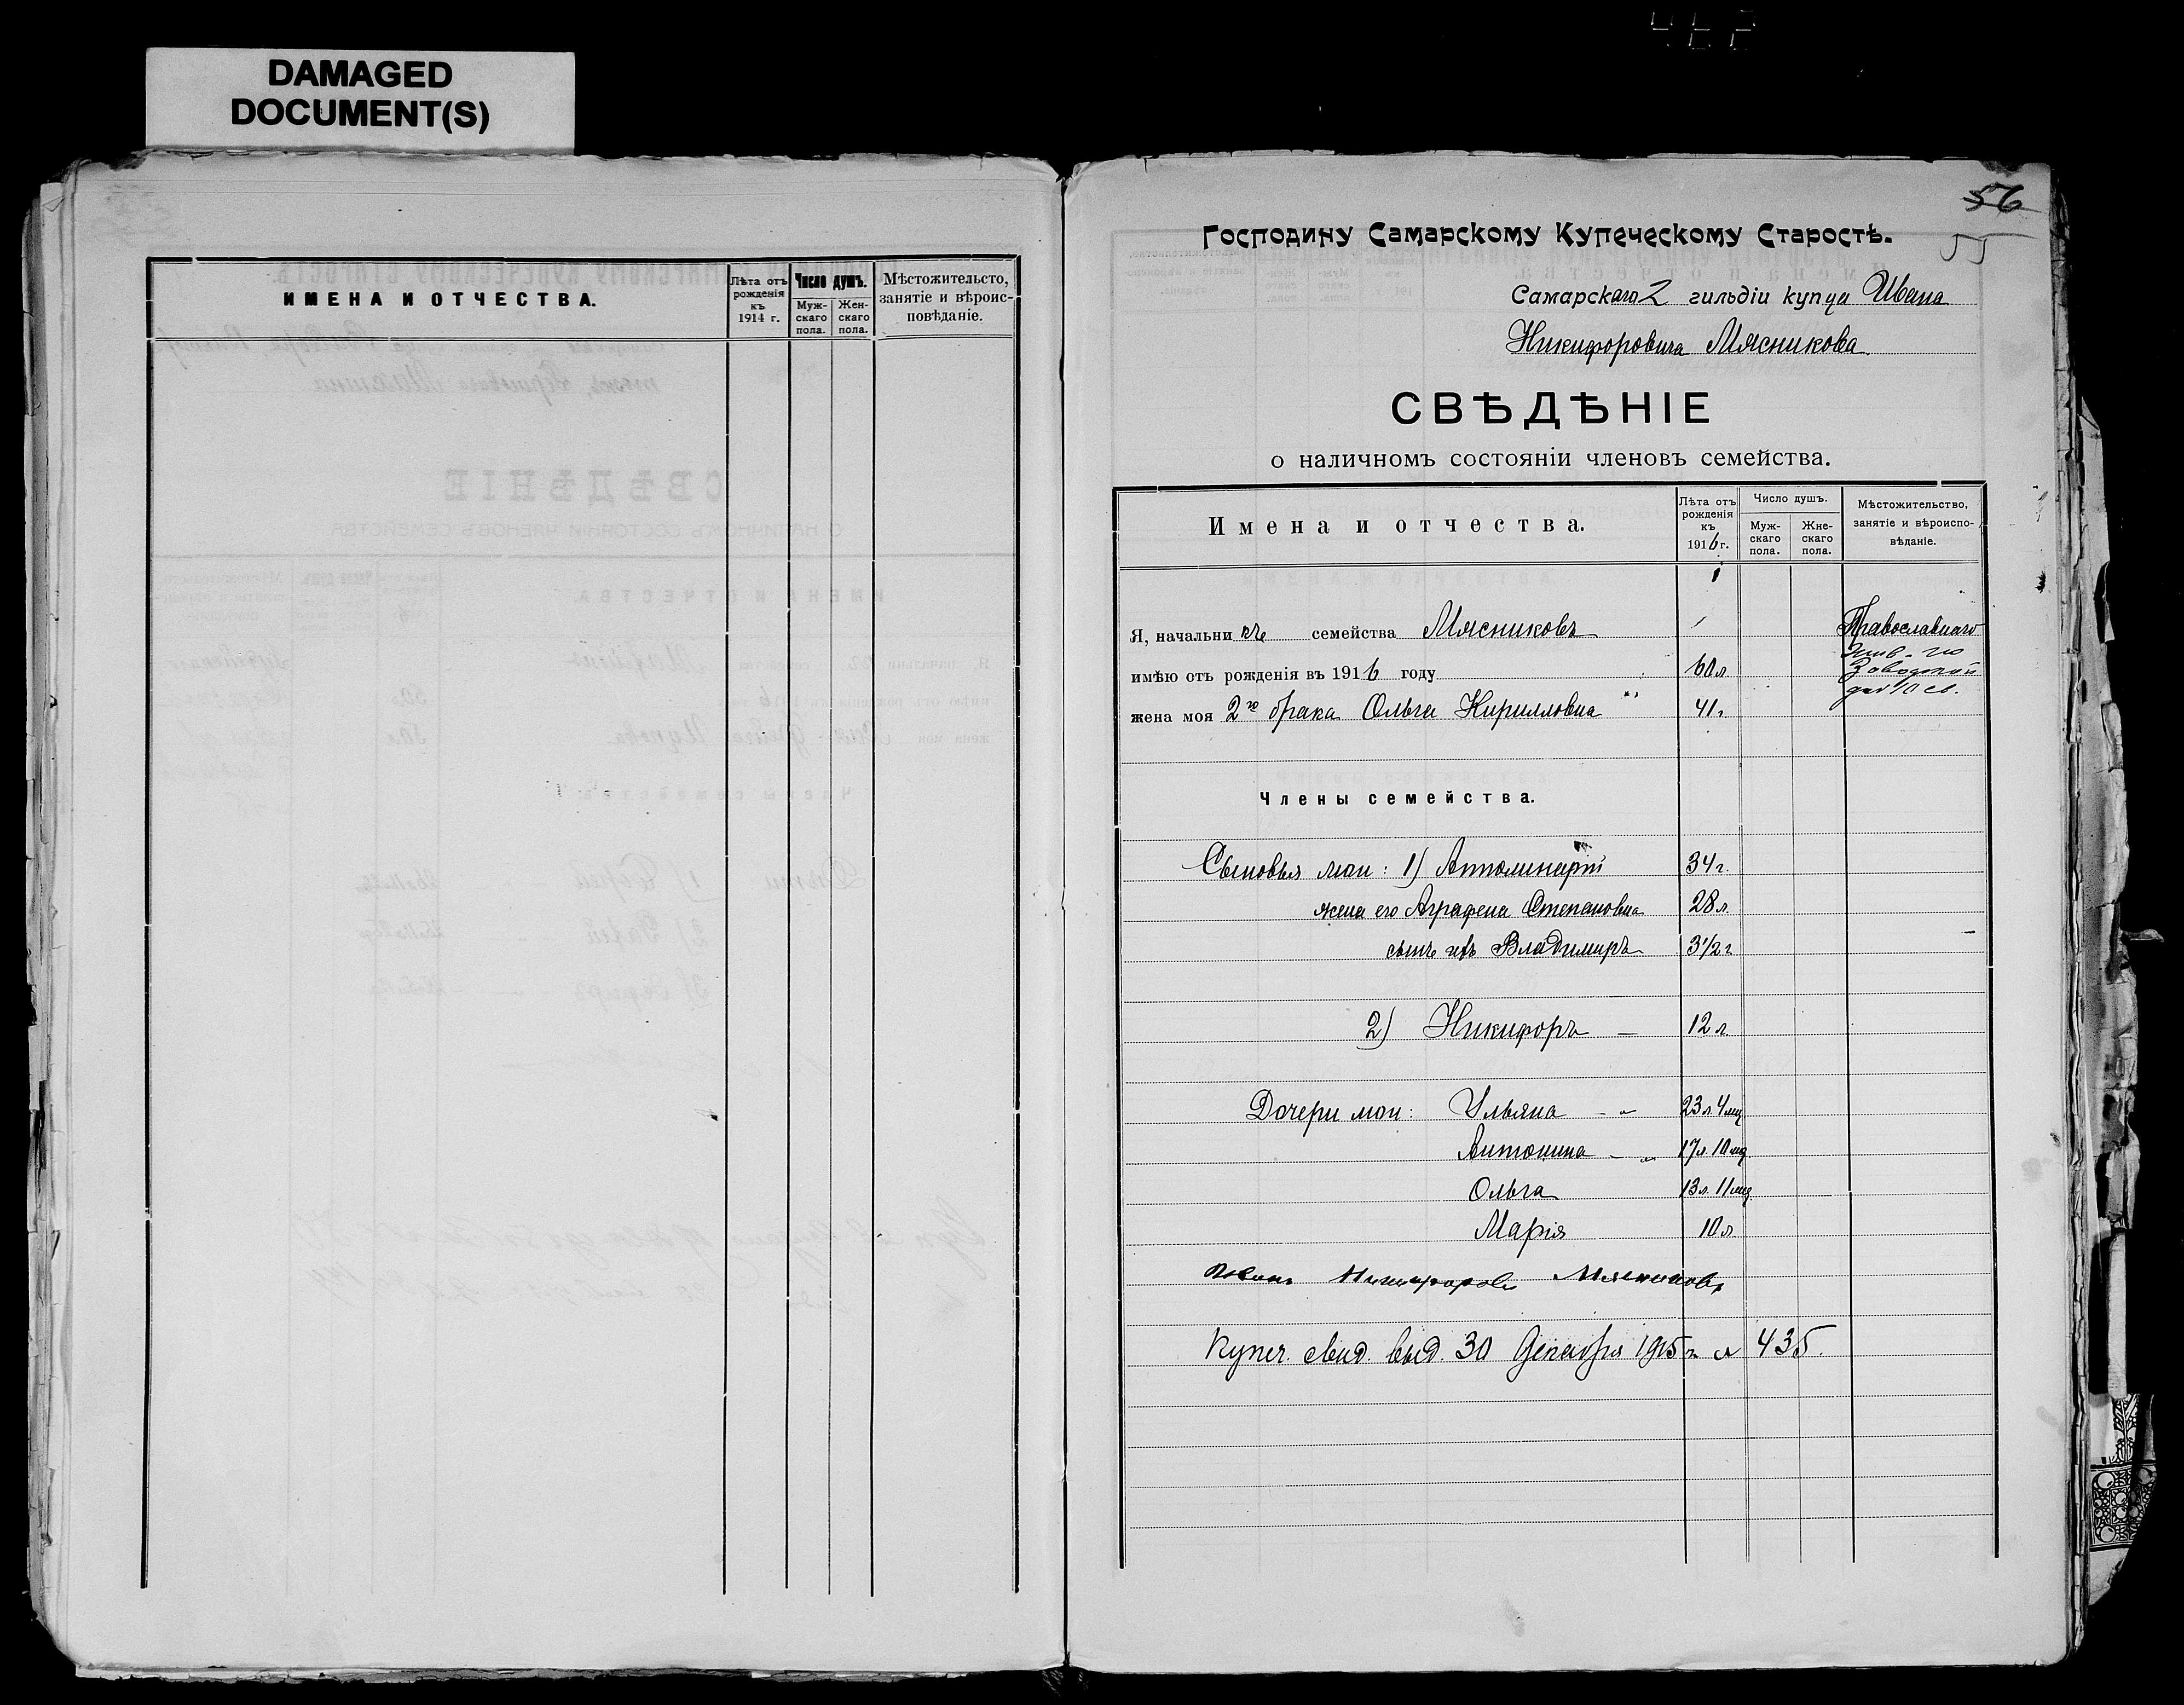 DAMAGED
DOCUMENT(S)
ИМЕНА И ОТЧЕСТВА.
Лѣта отъ рожденія къ 1914 г.
Число душъ.
Муж-скаго пола.
Жен-скаго пола.
Мѣстожительсто, занятіе и вѣроис-повѣданіе.
56
55
Господину Самарскому Купеческому Старостѣ.
Самарскаго 2 гильдіи купца Ивана
Никифоровича Мясникова
СВѢДѢНІЕ
о наличномъ состояніи членовъ семейства.
Имена и отчества.
Лѣта отъ рожденія къ 1916 г.
Число душъ.
Муж-скаго пола.
Жне-скаго пола.
Мѣстожительство, занятіе и вѣроиспо-вѣданіе.
Я, начальникъ семейства Мясниковъ Православнаго
имѣю отъ рожденія въ 1916 году 60 л.
жена моя 2го брака Ольга Кирилловна 41 г.
Члены семейства.
Сыновья мои: 1) Апполинарій 34 г.
жена его Аграфена Степановна 28 л.
сынъ ихъ Владимиръ 3 1/2 г.
2) Никифоръ — 12 л.
Дочери мои: Ульяна - „ 23 л. 4 мц
Антонина - „ 17 л. 10 мц
Ольга 13 л. 11 мц
Марія 10 л.
Иванъ Никифоровъ Мясниковъ
Купеч. свид. выд. 30 Декабря 1915 г. № 435.